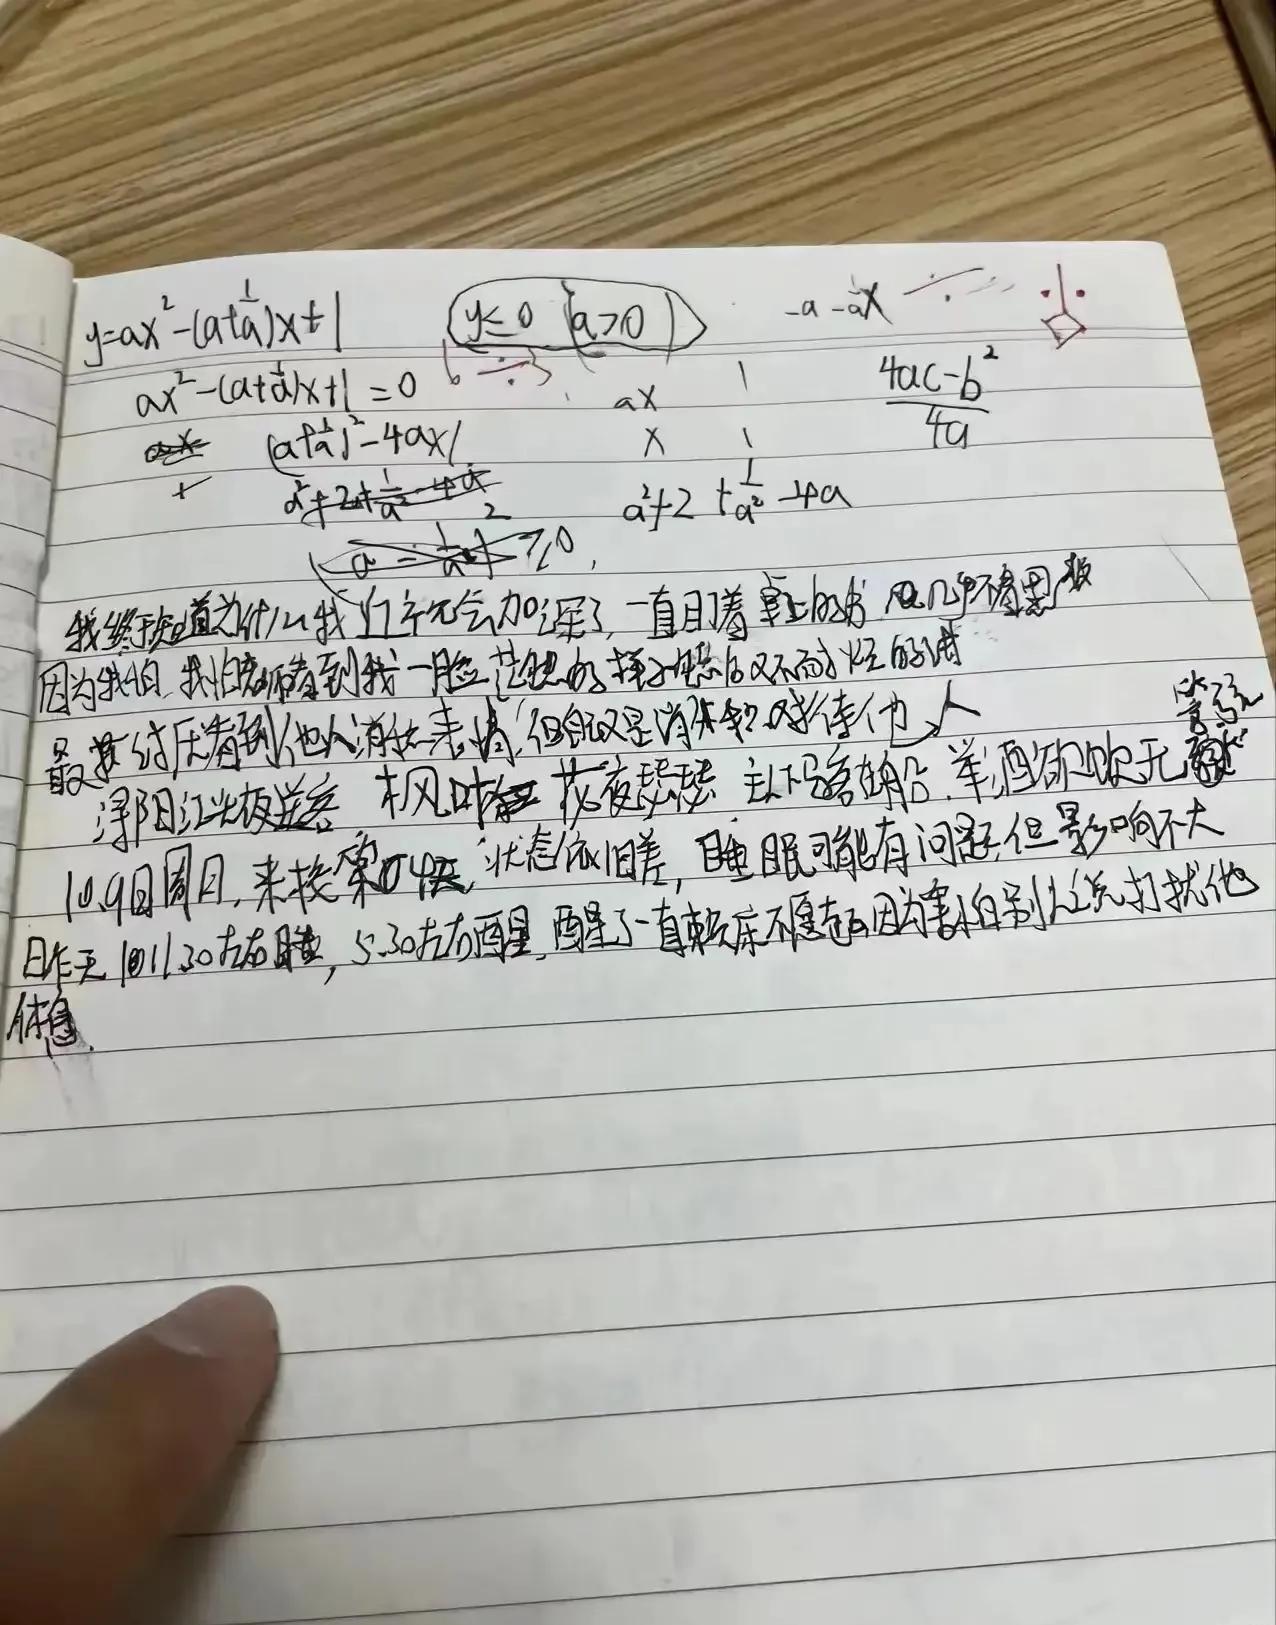 y=ax²-(a+1/a)x+1 y≤0 (a>0) -a-1/a x
ax²-(a+1/a)x+1=0 ax 1 4ac-b²/4a
(a+1/a)²-4ax1 x 1
a²+2+1/a²-4a a²+2+1/a²-4a
(a-1/a)²≥0
我终于知道为什么我 会加深了,一直盯着桌上的书 几乎不看黑板
因为我怕,我怕老师看到我一脸茫然的样子 又不耐烦的
最 讨厌看到他人消极表情,但自己又是消极 对待他人
浔阳江头夜送客 枫叶 荻 花夜瑟瑟 主人下马客在船,举酒欲饮无管弦
10.9日周日,来校第04天,状态依旧差,睡眠可能有问题,但影响不大
昨天 11.30左右睡,5.30左右醒,醒了一直赖床不愿起因为害怕别人说打扰他
休息.